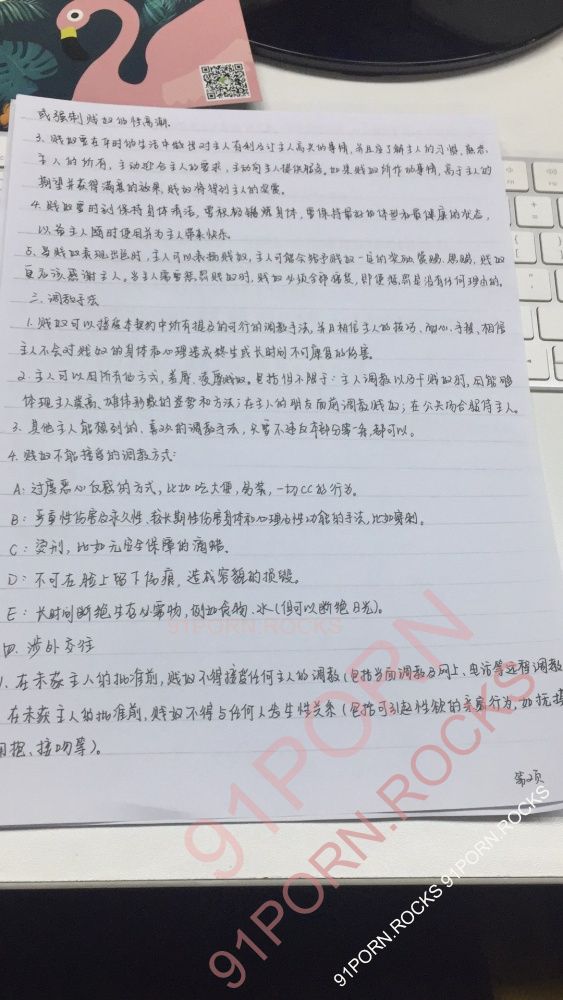 或强制贱奴的性高潮.
3. 贱奴要在平时的生活中做出对主人有利及让主人高兴的事情，并且应了解主人的习惯、熟悉
主人的所有，主动迎合主人的要求，主动向主人提供服务。如果贱奴所作的事情，高于主人的
期望并获得满意的效果，贱奴将得到主人的
4. 贱奴要时刻保持身体清洁，要积极锻炼身体，要保持最好的体型和最健康的状态，
以备主人随时使用并为主人带来快乐。
5. 当贱奴表现出色时，主人可以表扬贱奴，主人可能会给予贱奴一定的奖励、赏赐、恩赐，贱奴
更应该感谢主人。当主人需要惩罚贱奴时，贱奴必须全部接受，即便惩罚是没有任何理由的。
三. 调教手法
1. 贱奴可以接受本契约中所有提及的可行的调教手法，并且相信主人的技巧、耐心、手段、相信
主人不会对贱奴的身体和心理造成终生或长时间不可康复的伤害。
2. 主人可以用所有的方式，羞辱、凌虐贱奴。包括但不限于：主人调教以及干贱奴时，用能够
体现主人崇高、雄伟形象的姿势和方法；在主人的朋友面前调教贱奴；在公共场合服侍主人。
3. 其他主人能想到的、喜欢的调教手法，只要不违反本部分第一条，都可以。
4. 贱奴不能接受的调教方式：
A：过度恶心反感的方式，比如吃大便，兽奸，一切CC的行为。
B：严重性伤害及永久性、较长期性伤害身体和心理及性功能的手法，比如穿刺。
C：烫刑，比如无安全保障的滴蜡.
D：不可在脸上留下伤痕，造成容貌的损毁。
E：长时间断绝生存必需物，例如食物、水(但可以断绝日光)。
四. 涉外交往
1. 在未获主人的批准前，贱奴不得接受任何主人的调教(包括当面调教及网上、电话等远程调教
在未获主人的批准前，贱奴不得与任何人发生性关系(包括可引起性欲的亲昵行为，如抚摸
用抱、接吻等)。
第2页
91PORN.ROCKS
91PORN
91PORN.ROCKS
91PORN.ROCKS 91PORN.ROCKS